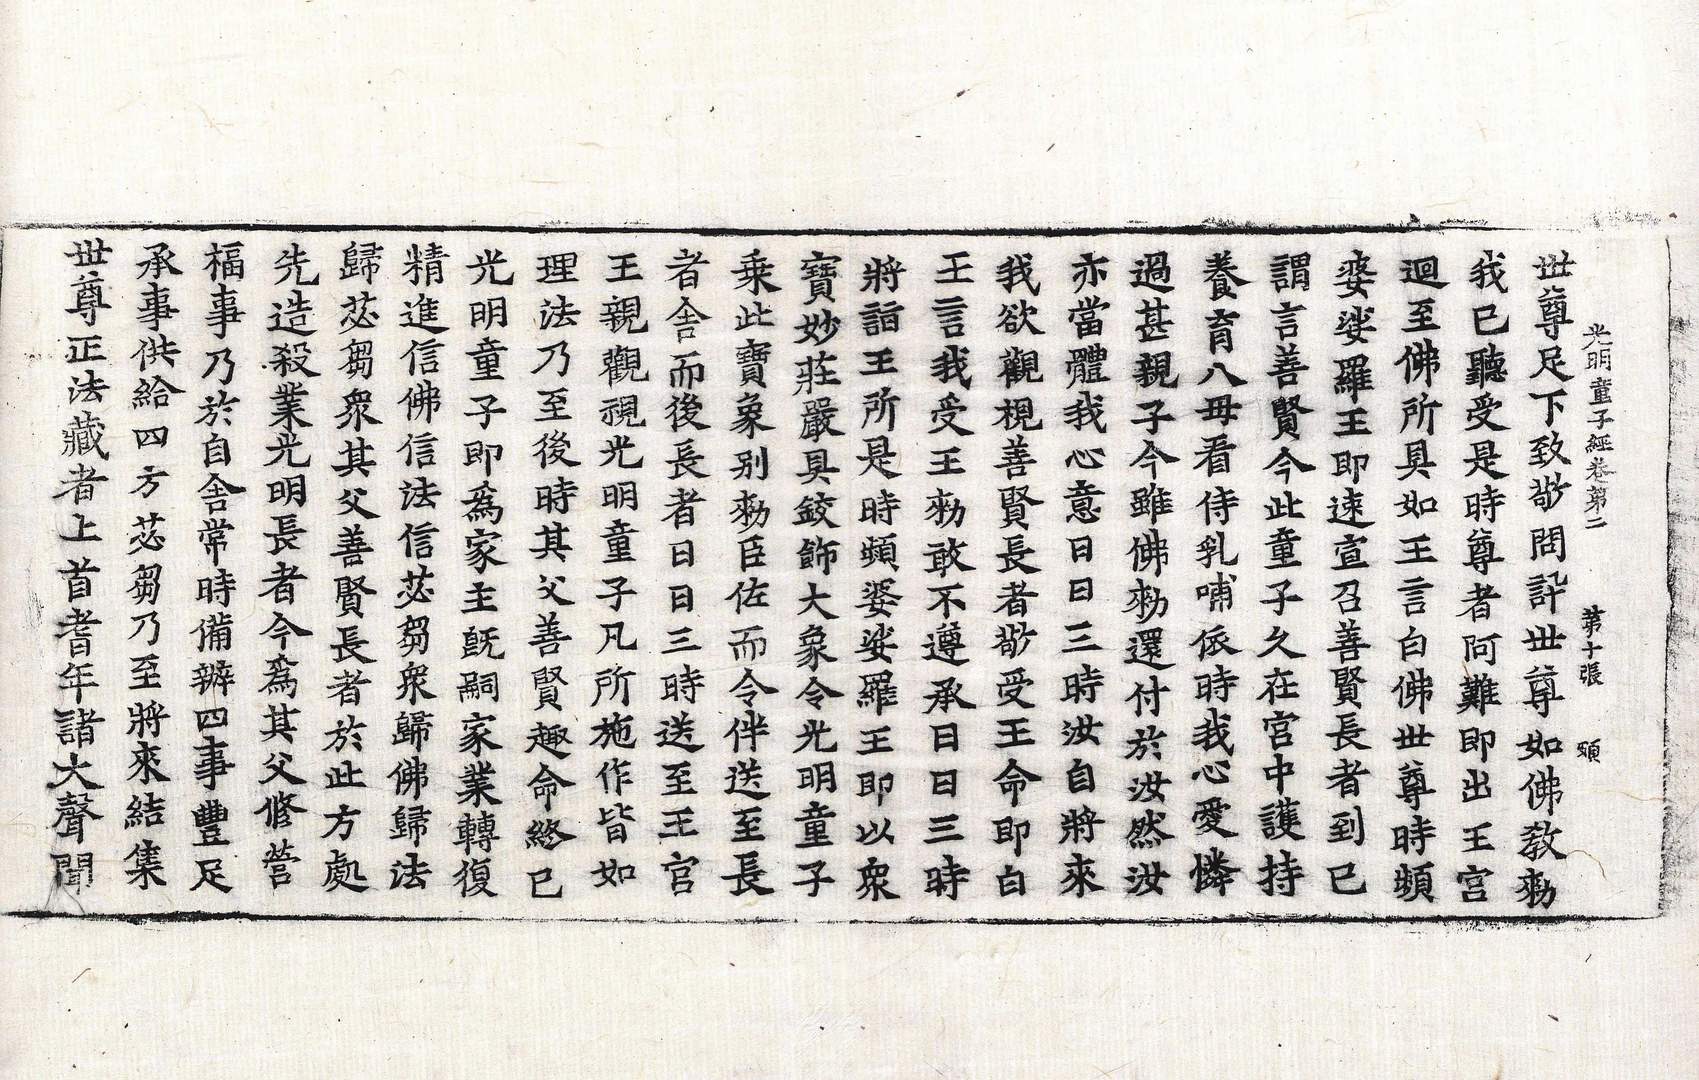 光明童子經卷第二 第十張 頞
世尊足下致敬問訊世尊如佛教勑
我已聽受是時尊者阿難即出王宮
迴至佛所具如王言白佛世尊時頻
婆娑羅王即速宣召善賢長者到已
謂言善賢今此童子久在宮中護持
養育八母看侍乳哺依時我心愛憐
過甚親子今雖佛勑還付於汝然汝
亦當體我心意日日三時汝自將來
我欲觀視善賢長者敬受王命即白
王言我受王勑敢不遵承日日三時
將詣王所是時頻婆娑羅王即以衆
寶妙莊嚴具鉸飾大象令光明童子
乗此寶象別勑臣佐而令伴送至長
者舍而後長者日日三時送至王宮
王親觀視光明童子凡所施作皆如
理法乃至後時其父善賢趣命終已
光明童子即爲家主既嗣家業轉復
精進信佛信法信苾芻衆歸佛歸法
歸苾芻衆其父善賢長者於此方處
先造殺業光明長者今爲其父修營
福事乃於自舍常時備辦四事豐足
承事供給四方苾芻乃至將來結集
世尊正法藏者上首耆年諸大聲聞